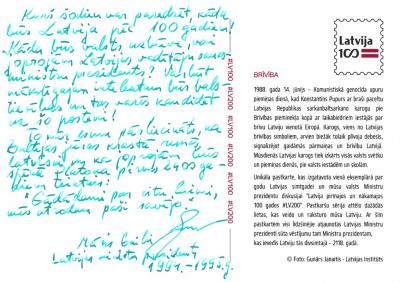 Kurš šodien var paredzēt, kāda
būs Latvija pēc 100 gadiem?
Kāda būs valsts uzbūve, vai
joprojām Latvijas vadītājs sauks
ministru prezidents? Varbūt
mākslīgajam intelektam būs balss
tiesības un tas varēs kandidēt
uz šo posteni?
To mēr, esmu pārliecināts, ka
Baltijas jūras krastā runās
latviski un ka joprojām būs
spēkā Platona pirms 2400 ga-
diem teiktais:
"Gādādami par citu laimi,
mēs atrodam paši savējo"
Māris Gailis
Latvijas ministru prezidents
1994.-1995.g.
#LV100 #LV200 #LV100 #LV200 #LV100 #LV200
Latvija
100
BRĪVĪBA
1988. gada 14. jūnijs – Komunistiskā genocīda upuru
piemiņas dienā, kad Konstantīns Pupurs ar brašu gaitu
Latvijas Republikas sarkanbaltsarkano karogu pie
Brīvības pieminekļa kopā ar laikabiedriem iestājās par
brīvu Latviju vienotā Eiropā. Karogs, viens no Latvijas
brīvības simboliem, arvien biežāk tolaik plīvoja debesīs,
signalizējot gaidāmās pārmaiņas un brīvību Latvijā.
Mūsdienās Latvijas karogs tiek izkārts visās valsts svētku
un piemiņas dienās, pie valsts iestādēm un skolām.
Unikāla pastkarte, kas izgatavota vienā eksemplārā par
godu Latvijas simtgadei un mūsu valsts Ministru
prezidentu diskusijai "Latvija pirmajos un nākamajos
100 gados #LV200". Pastkaršu sērija attēlo dažādās
lietas, kas veido un raksturo mūsu Latviju. Ar šīm
pastkartēm visi līdzšinējie atjaunotās Latvijas Ministru
prezidenti sūta vēstījumu tam Ministru prezidentam,
kas ievedīs Latviju tās divsimtajā – 2118. gadā.
© Foto: Gunārs Janaitis - Latvijas Institūts